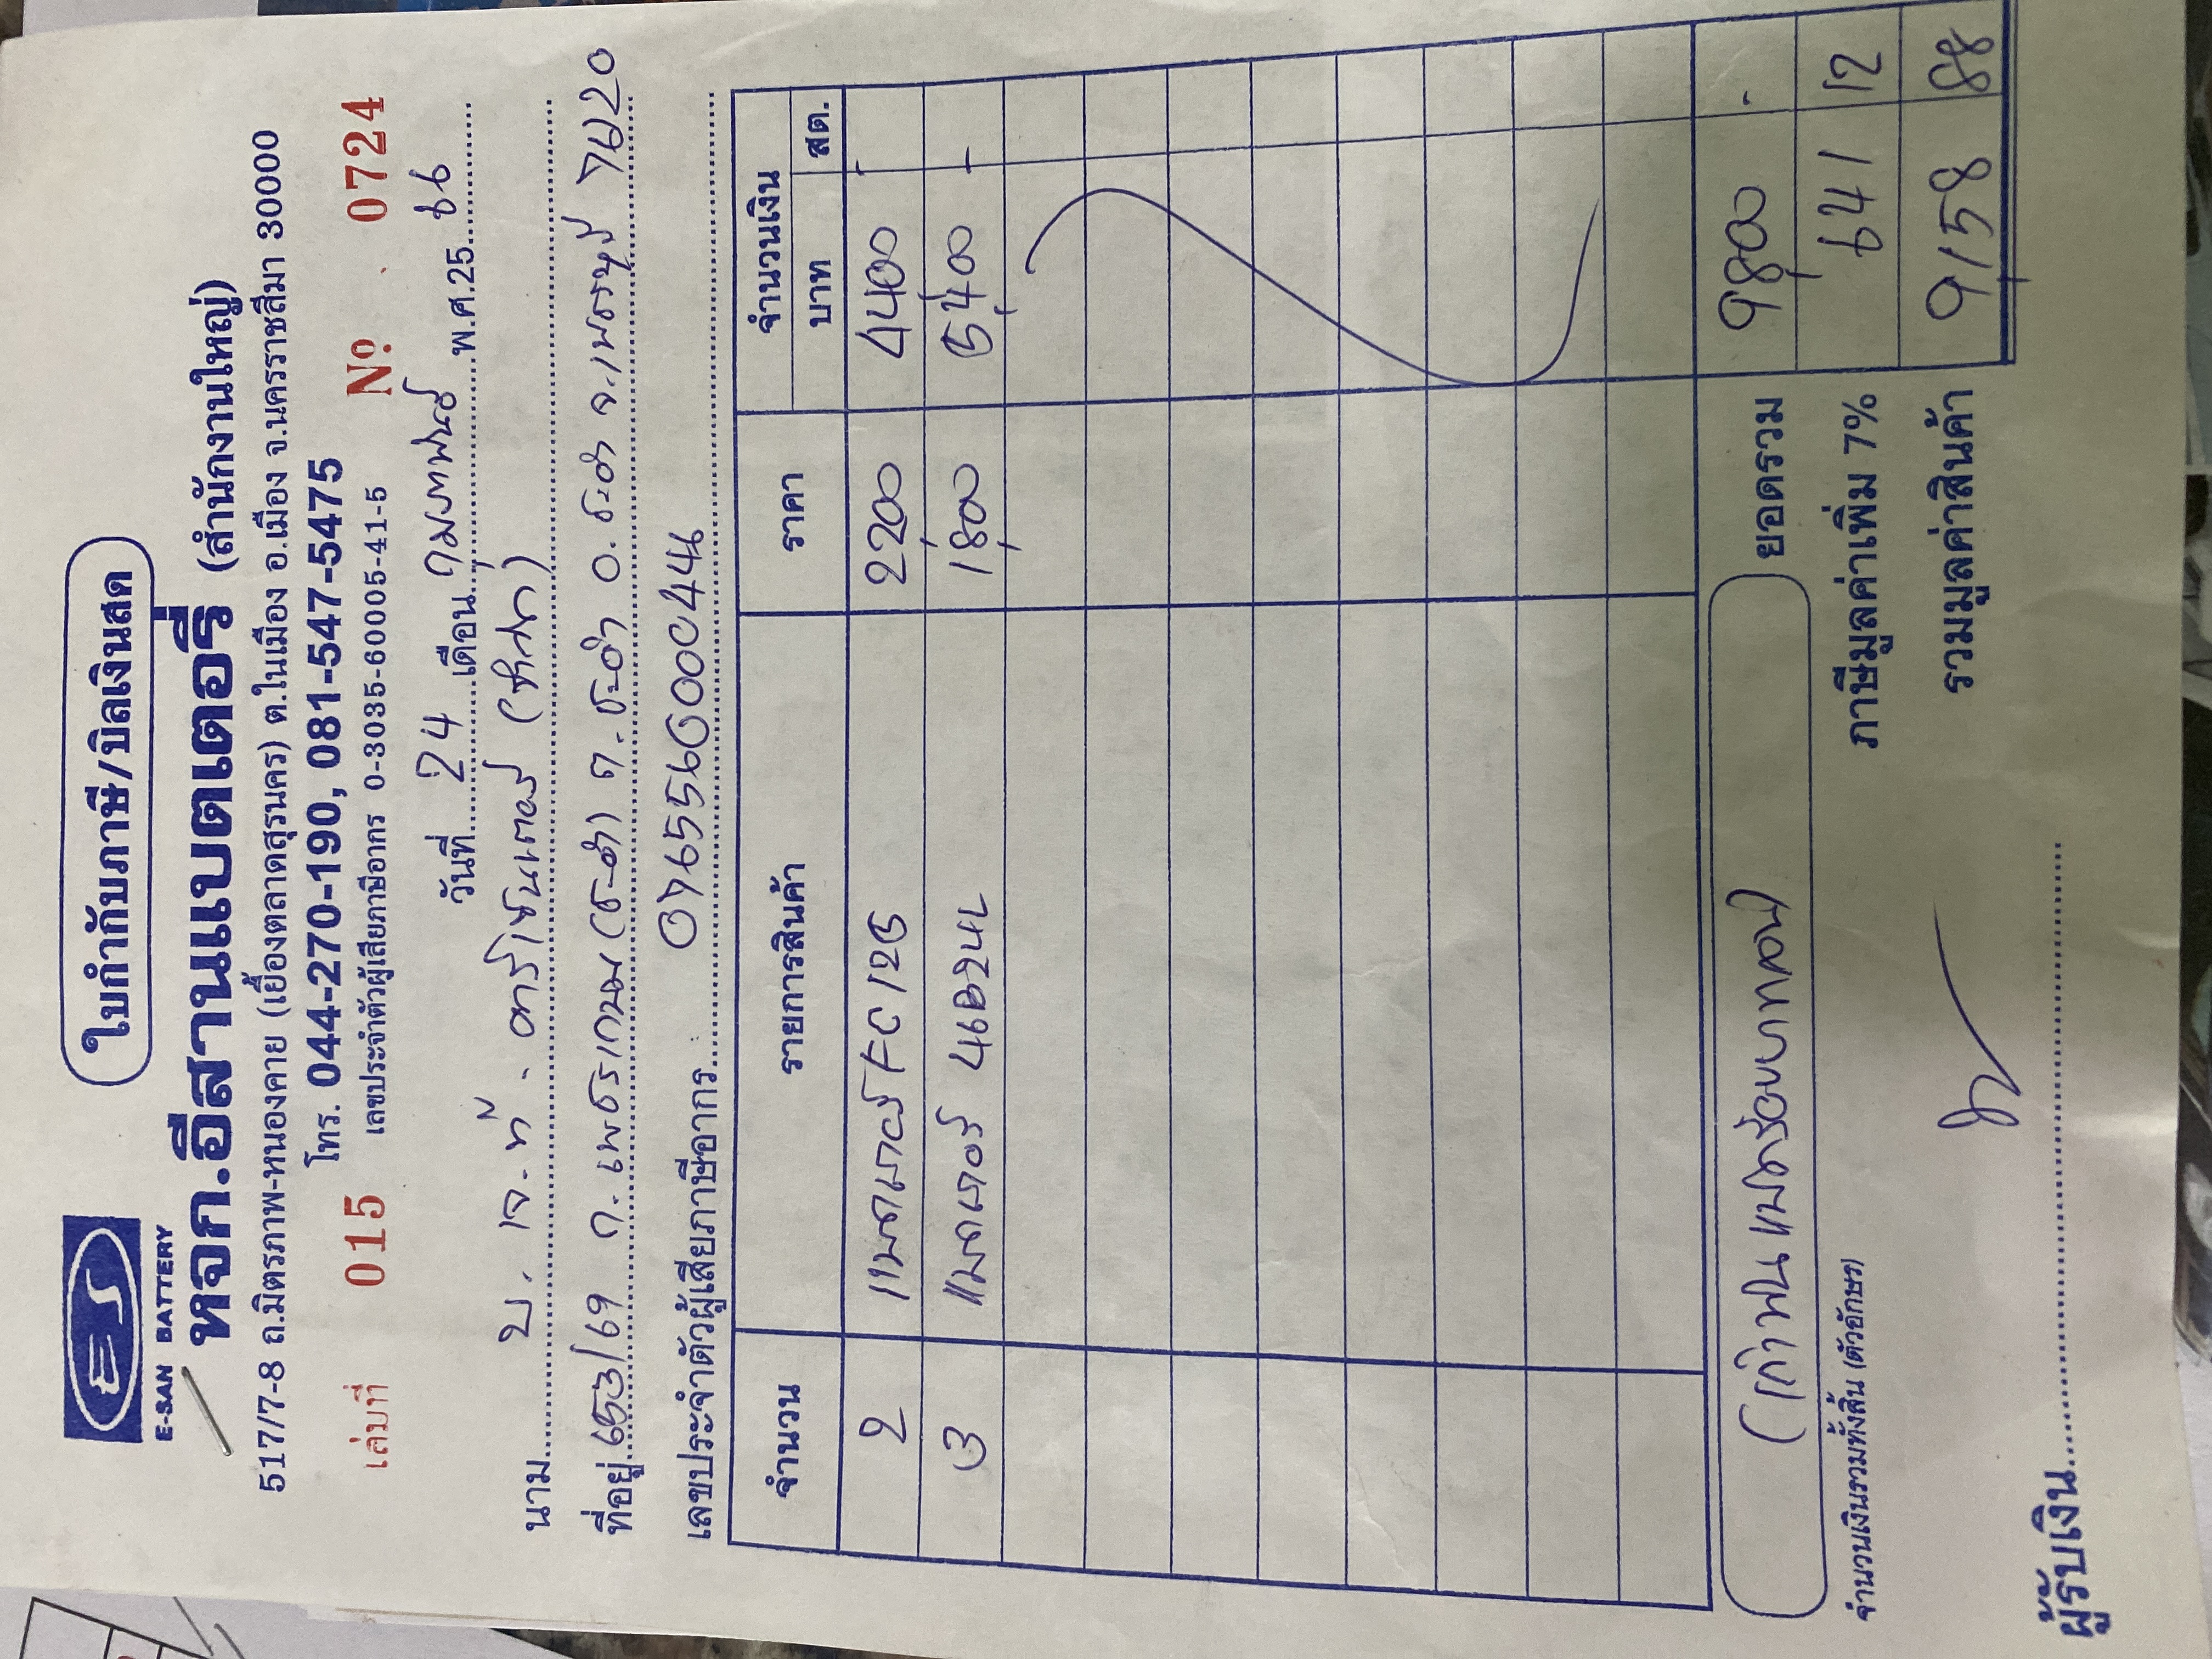 ใบกำกับภาษี/บิลเงินสด
E-SAN BATTERY
หจก.อีสานแบตเตอรี่ (สำนักงานใหญ่)
517/7-8 ถ.มิตรภาพ-หนองคาย (เยื้องตลาดสุรนคร) ต.ในเมือง อ.เมือง จ.นครราชสีมา 30000
โทร. 044-270-190, 081-547-5475
เล่มที่ 015 เลขประจำตัวผู้เสียภาษีอากร 0-3035-60005-41-5 Nº 0724
วันที่ 24 เดือน กุมภาพันธ์ พ.ศ.25 66
นาม บ. เจ.ที. คาร์เซ็นเตอร์ (ชะอำ)
ที่อยู่ 653/69 ถ.เพชรเกษม (ชะอำ) ต.ชะอำ อ.ชะอำ จ.เพชรบุรี 76120
เลขประจำตัวผู้เสียภาษีอากร 0765560000444
จำนวน รายการสินค้า ราคา จำนวนเงิน
บาท สต.
2 แบตเตอรี่ FC 125 2,200 4400 -
3 แบตเตอรี่ 46B24L 1,800 5,400 -
ยอดรวม 9,800 -
(เก้าพันแปดร้อยบาทถ้วน)
ภาษีมูลค่าเพิ่ม 7% 641 12
จำนวนเงินรวมทั้งสิ้น (ตัวอักษร)
รวมมูลค่าสินค้า 9,158 88
ผู้รับเงิน